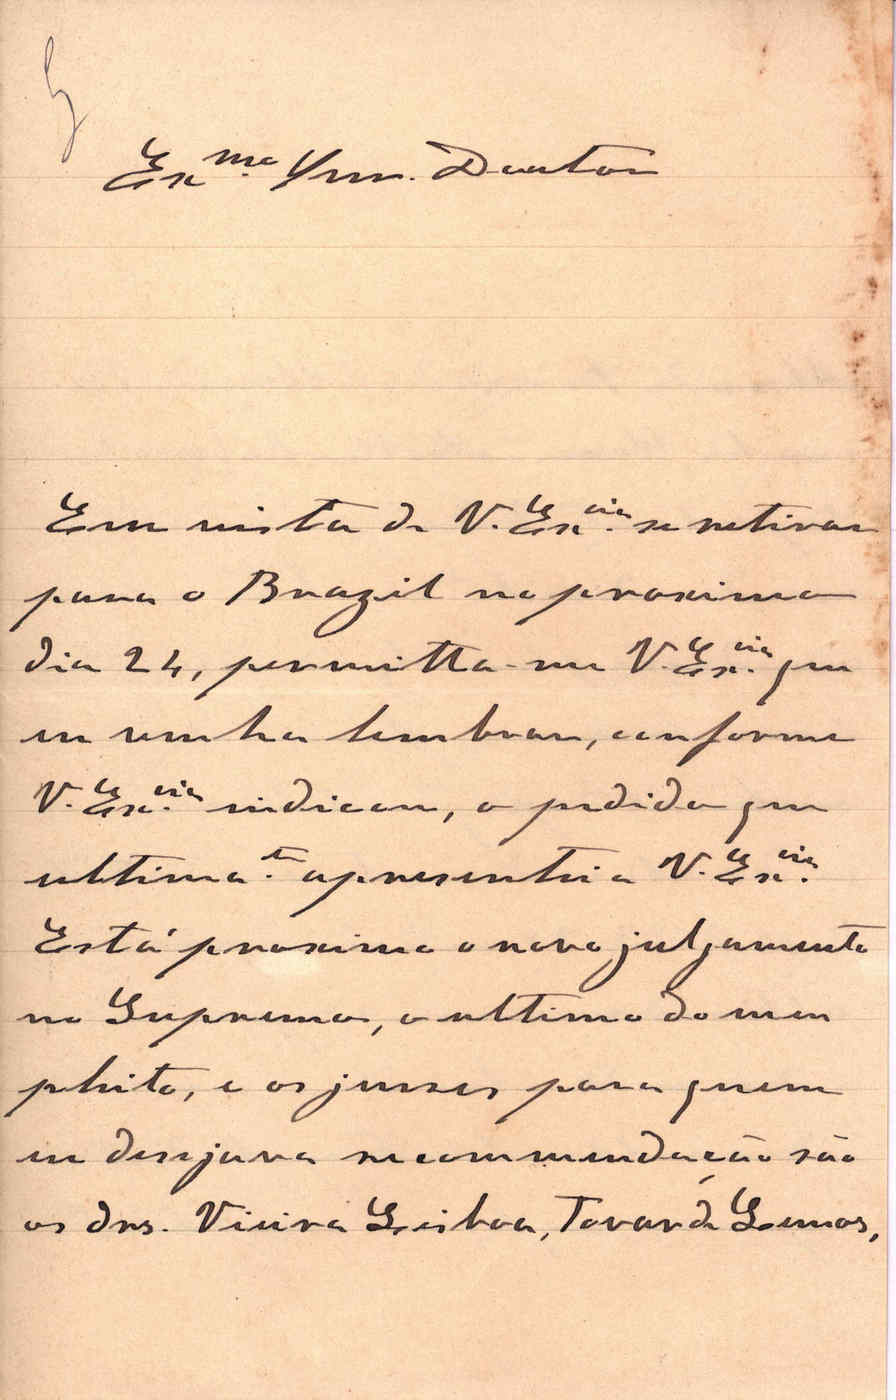 Ex.mo Snr. Doutor
Em vista de V. Ex.cia se retirar
para o Brazil no proximo
dia 24, permitta-me V. Ex.cia que
eu venha lembrar, conforme
V. Ex.cia indicou, o pedido que
ultima.te apresentei a V. Ex.cia
Está proximo o novo julgamento
no Supremo, o ultimo do meu
pleito, e os juizes para quem
eu desejava recommendação são
os drs. Vieira Lisboa, Tovar de Lemos,